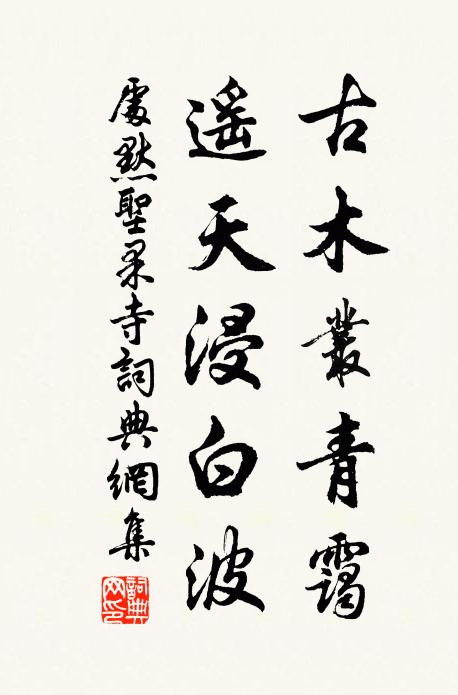 古木叢青靄
遙天浸白波
處默聖果寺詞典網集
詞典网印